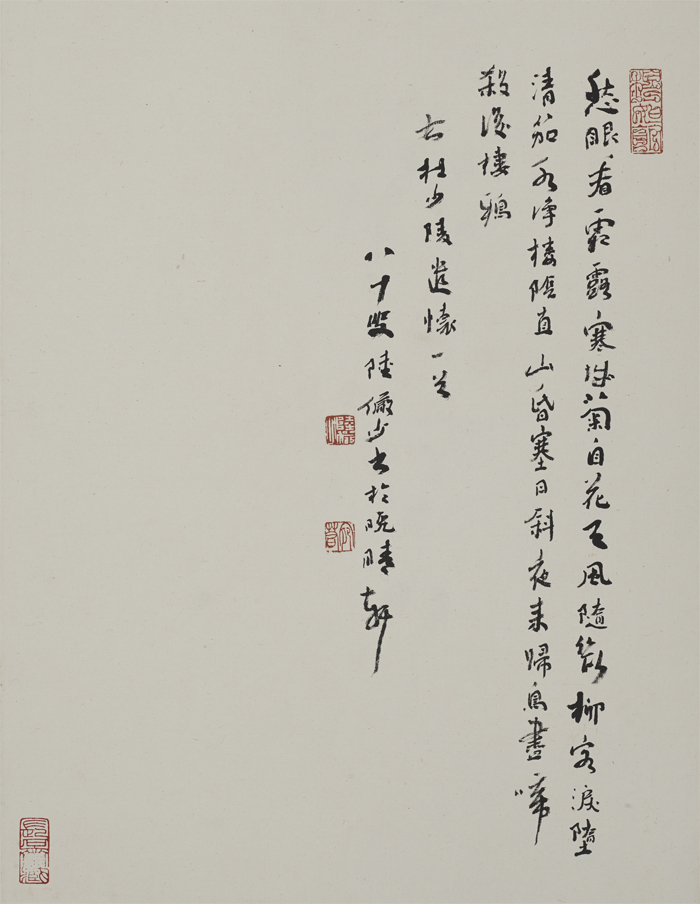 愁眼看霜露寒城菊自花天風隨斷柳客淚墮
清笳水淨樓陰直山昏塞日斜夜來歸鳥盡啼
殺後棲鴉
右杜少陵遣懷一首
八十叟陸儼少書於晚晴軒